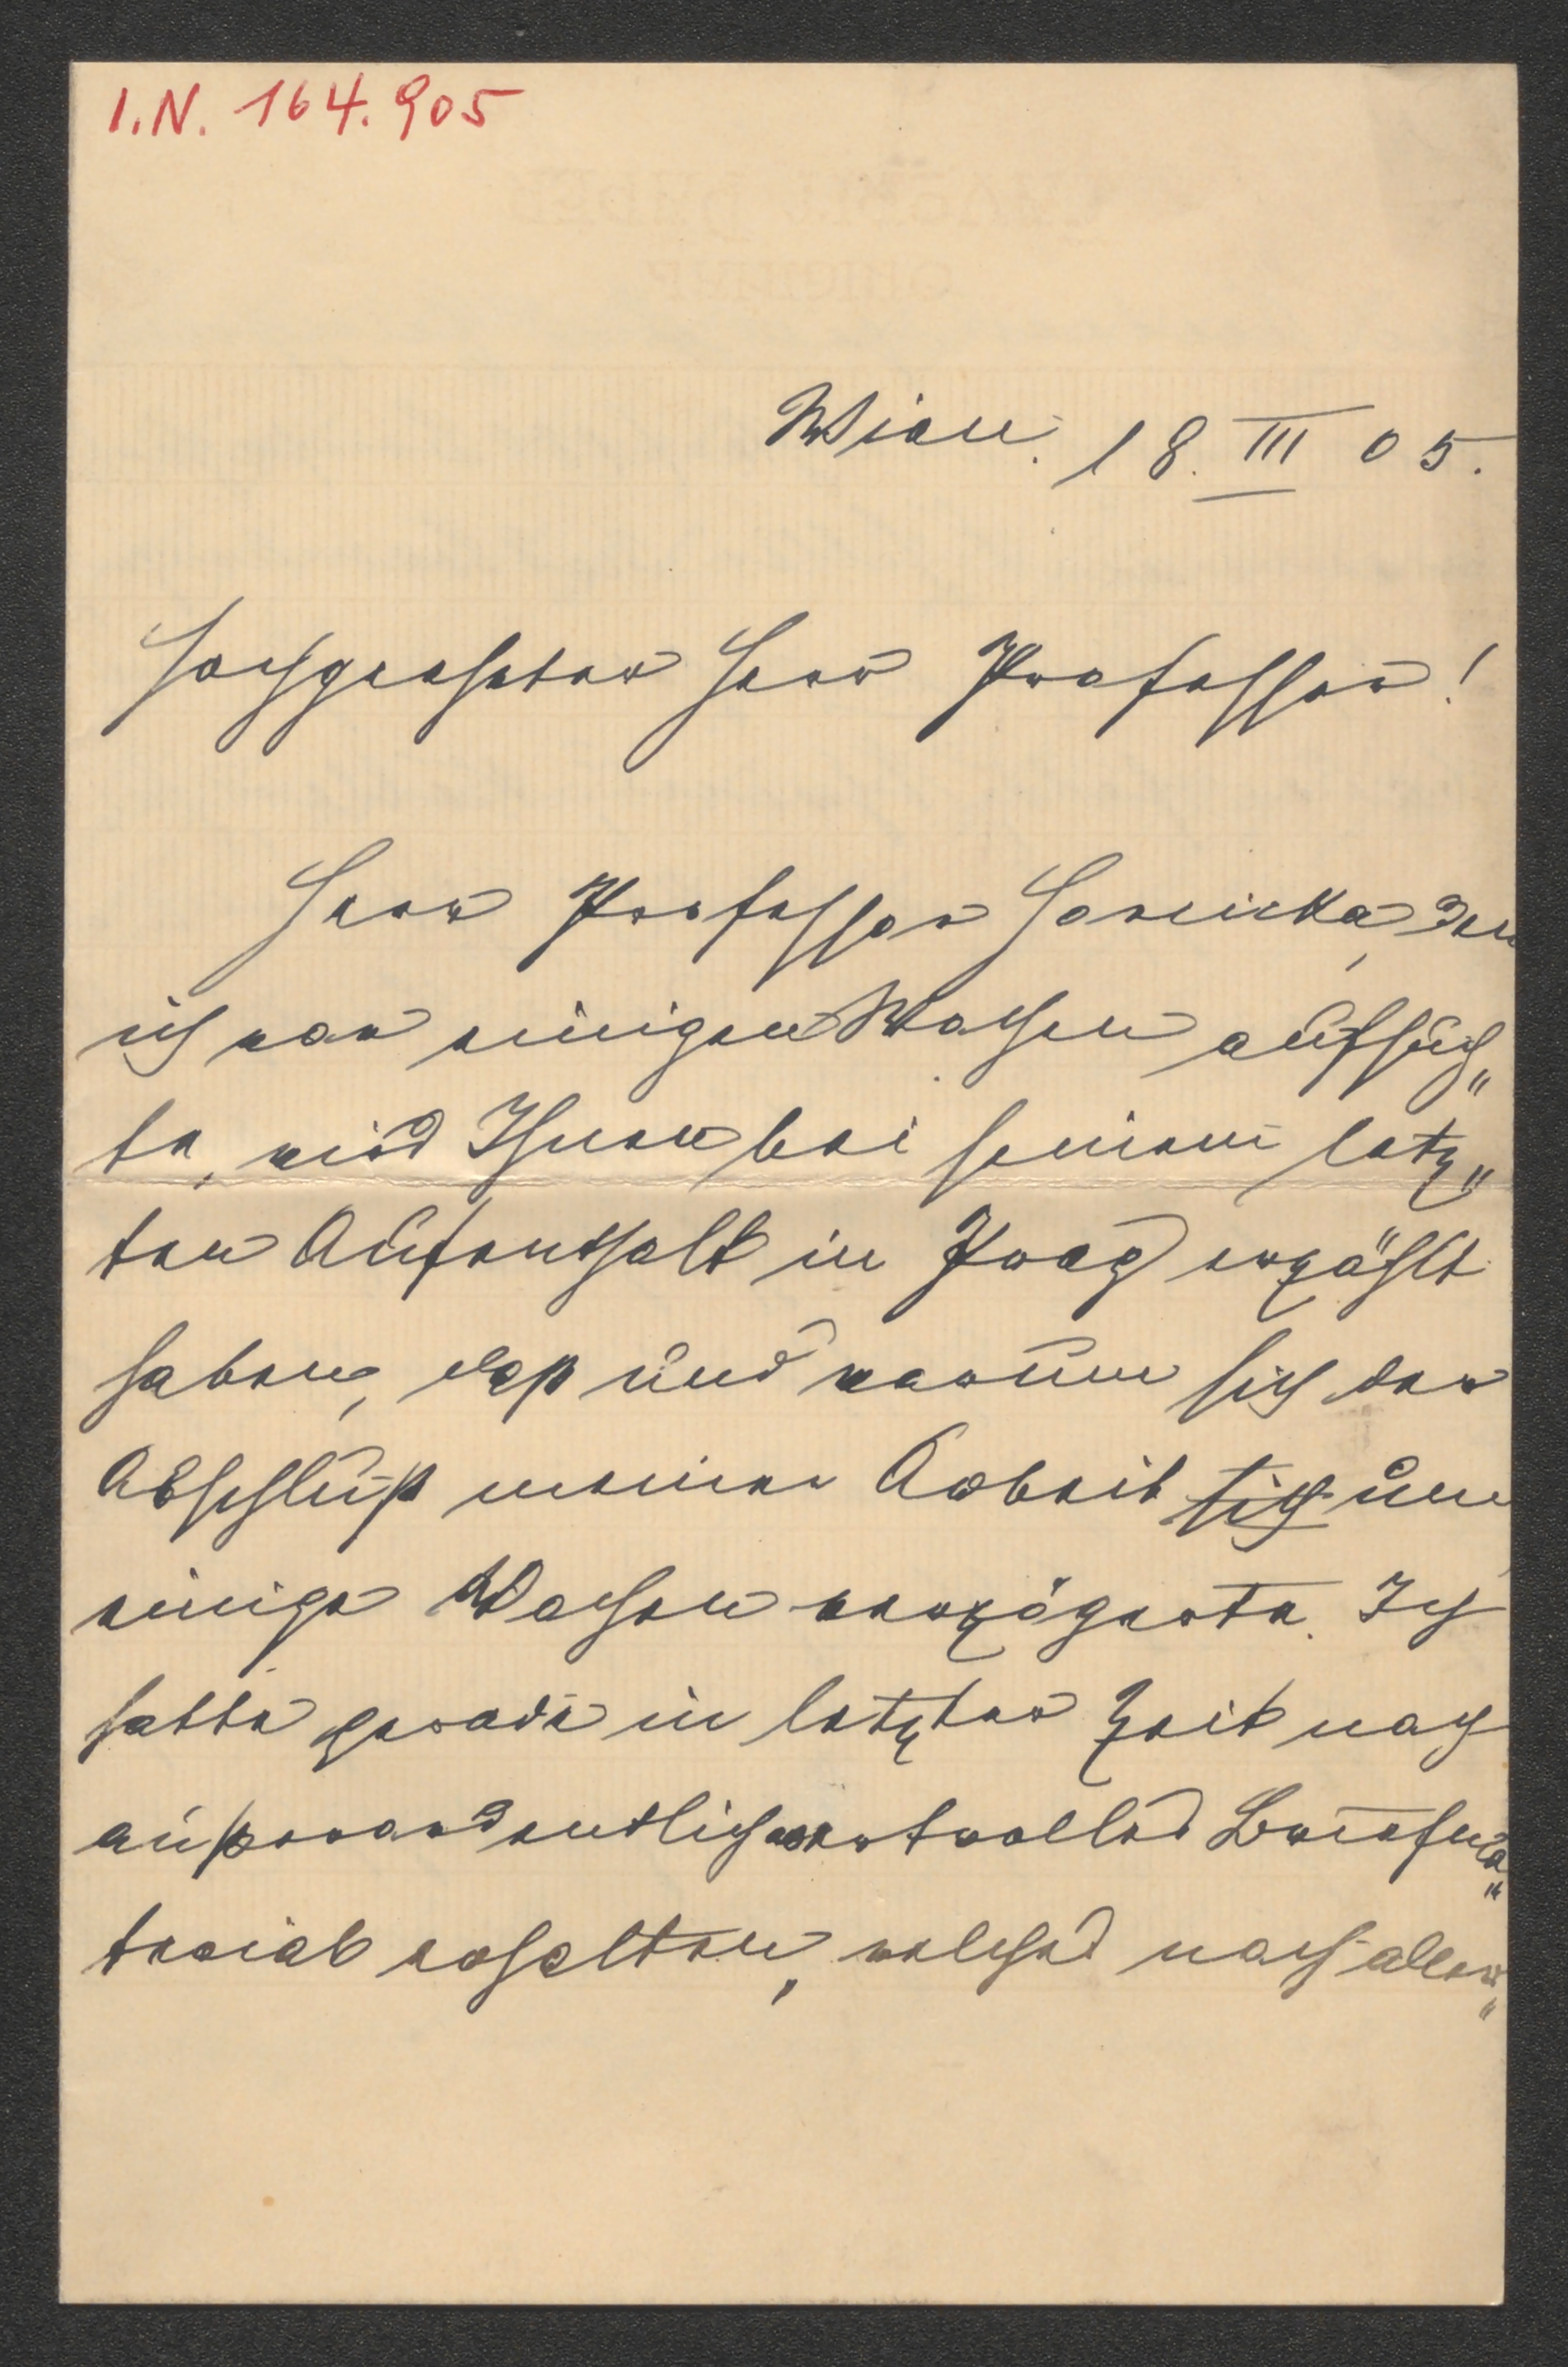 I.N. 164.905
Wien. 18. III 05.
Hochgeehrter Herr Professor!
Herr Professor Horcicka, den
ich vor einigen Wochen aufsuch„
te, wird Ihnen bei seinem letz„
ten Aufenthalt in Prag erzählt
haben, daß und warum sich der
Abschluß meiner Arbeit sich um
einige Wochen verzögerte. Ich
hatte gerade in letzter Zeit noch
außerordentlich wertvolles Briefma„
terial erhalten, welches noch aller„